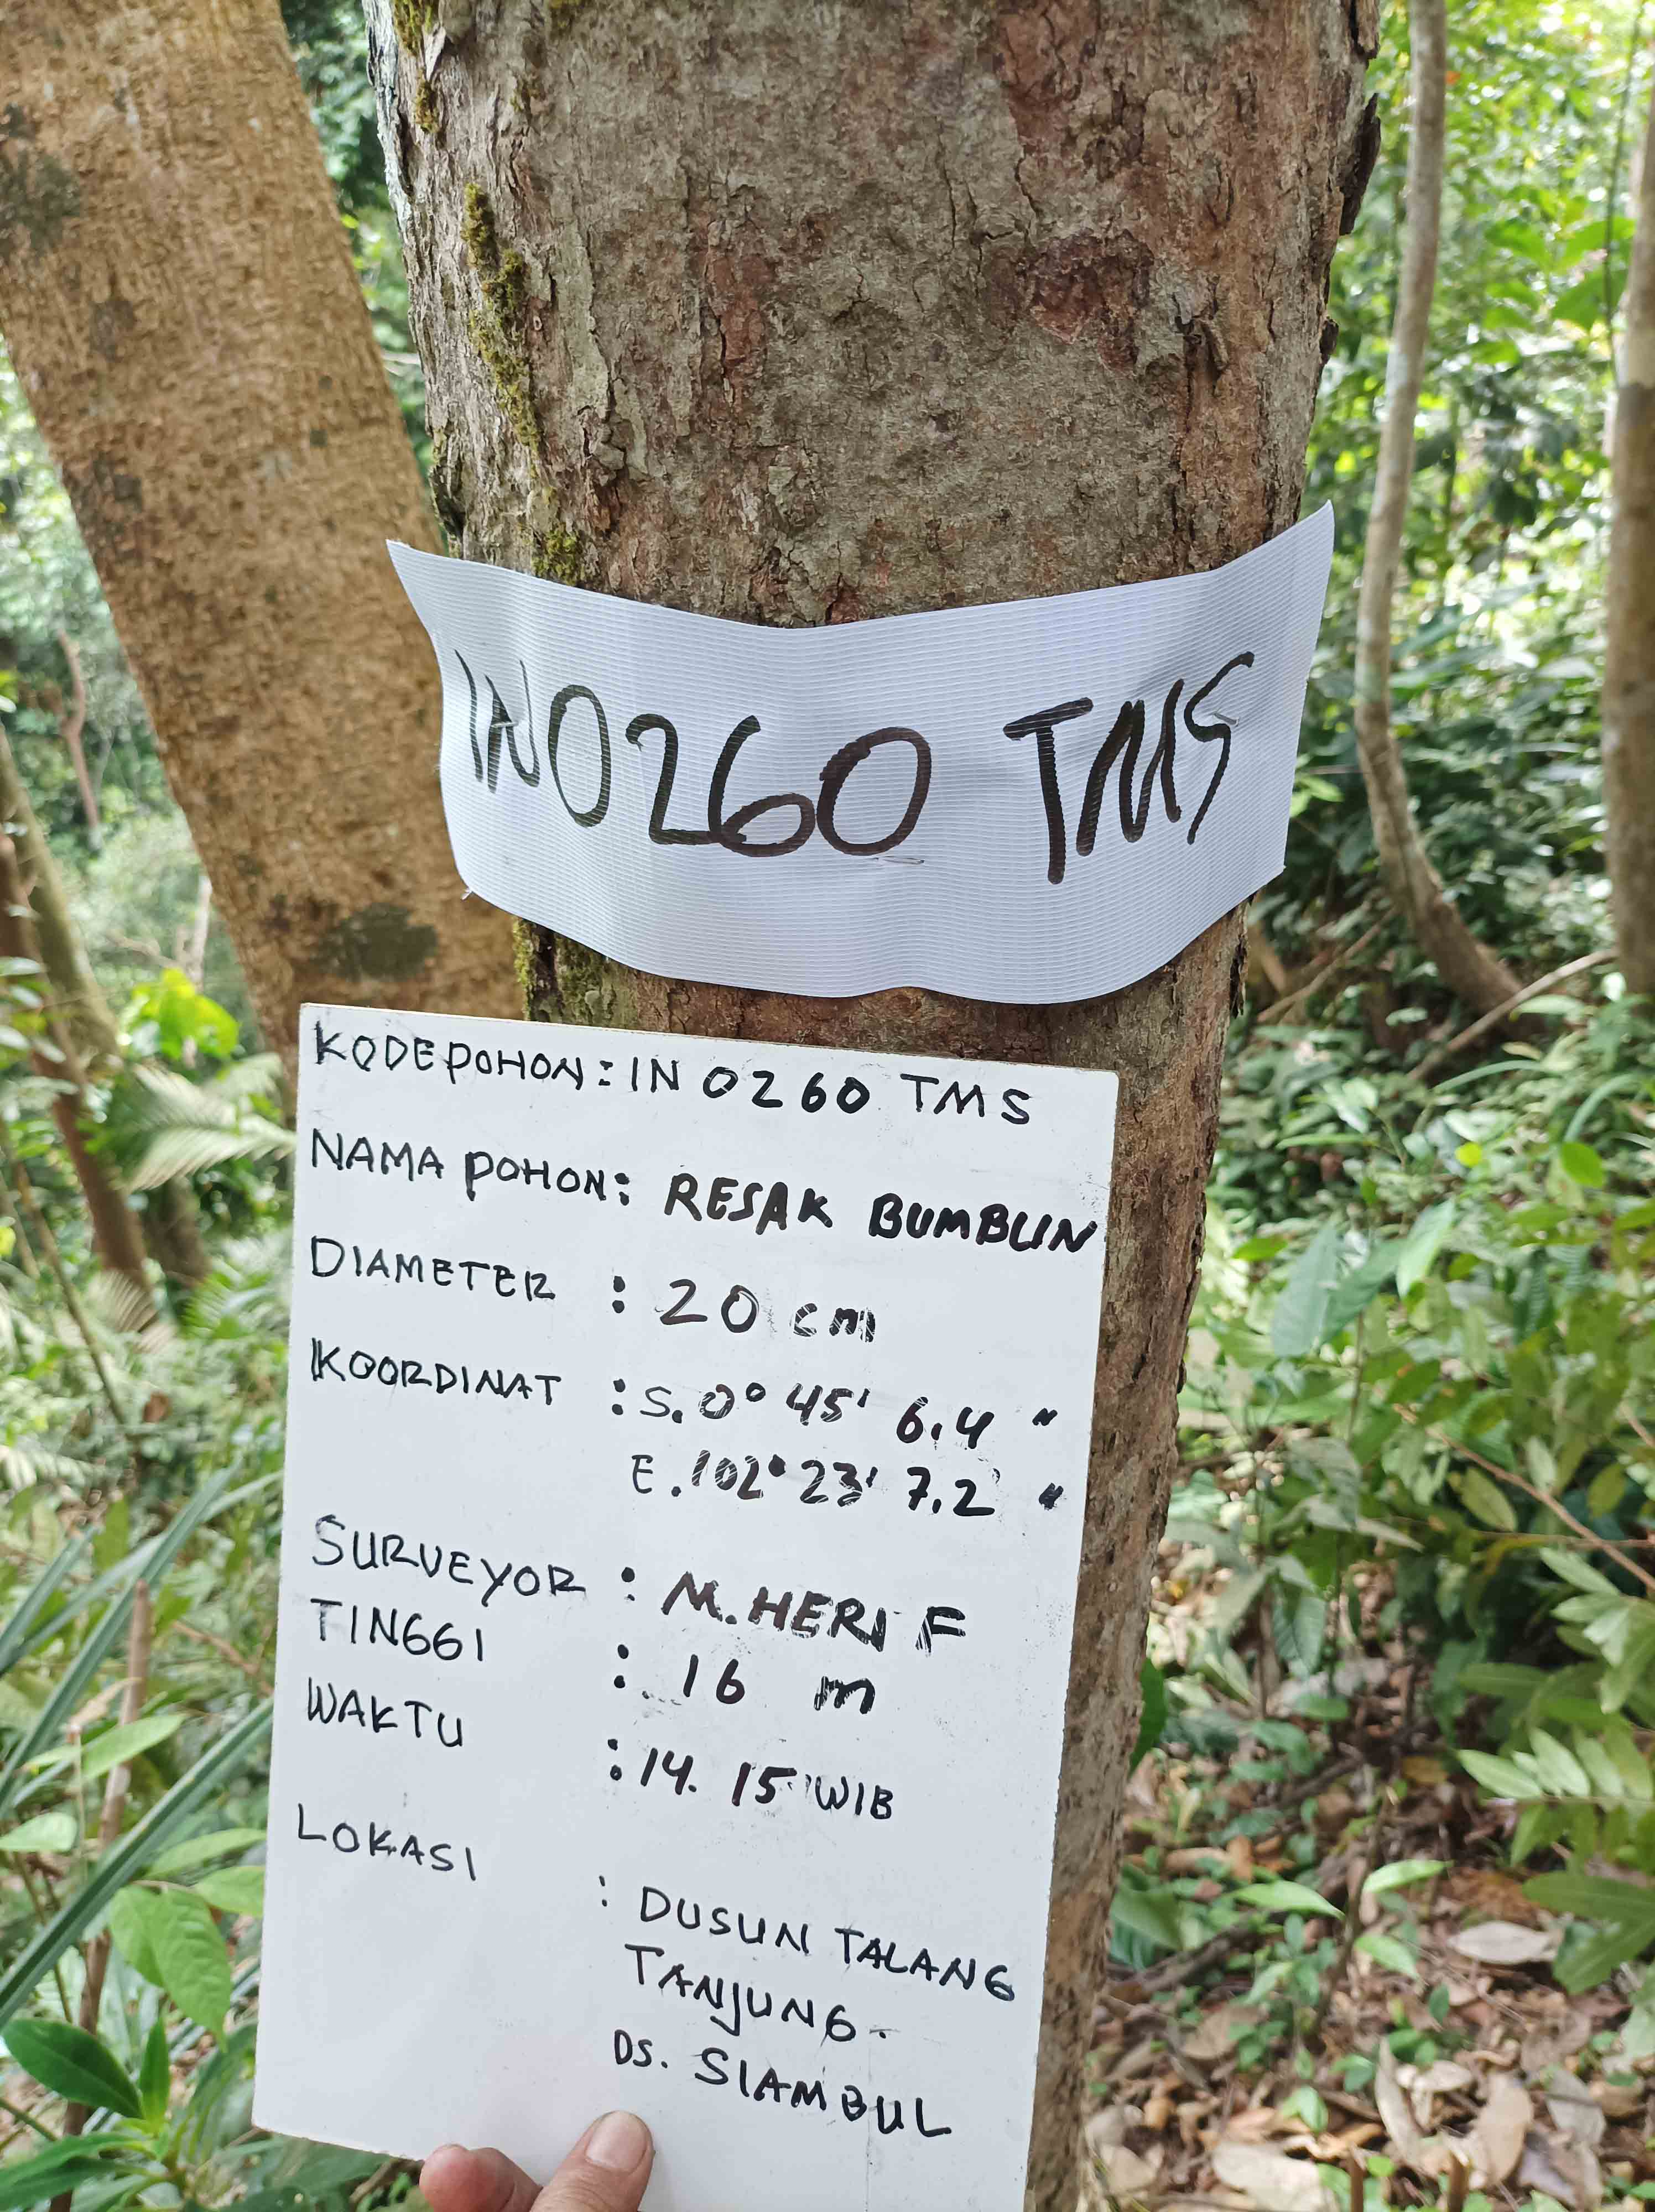 IN0260 TMS
KODE POHON : IN 0260 TMS
NAMA POHON : RESAK BUMBUN
DIAMETER : 20 cm
KOORDINAT : S. 0° 45' 6.4 "
E. 102° 23' 7.2 "
SURVEYOR : M. HERI F
TINGGI : 16 m
WAKTU : 14. 15 WIB
LOKASI : DUSUN TALANG
TANJUNG.
DS. SIAMBUL